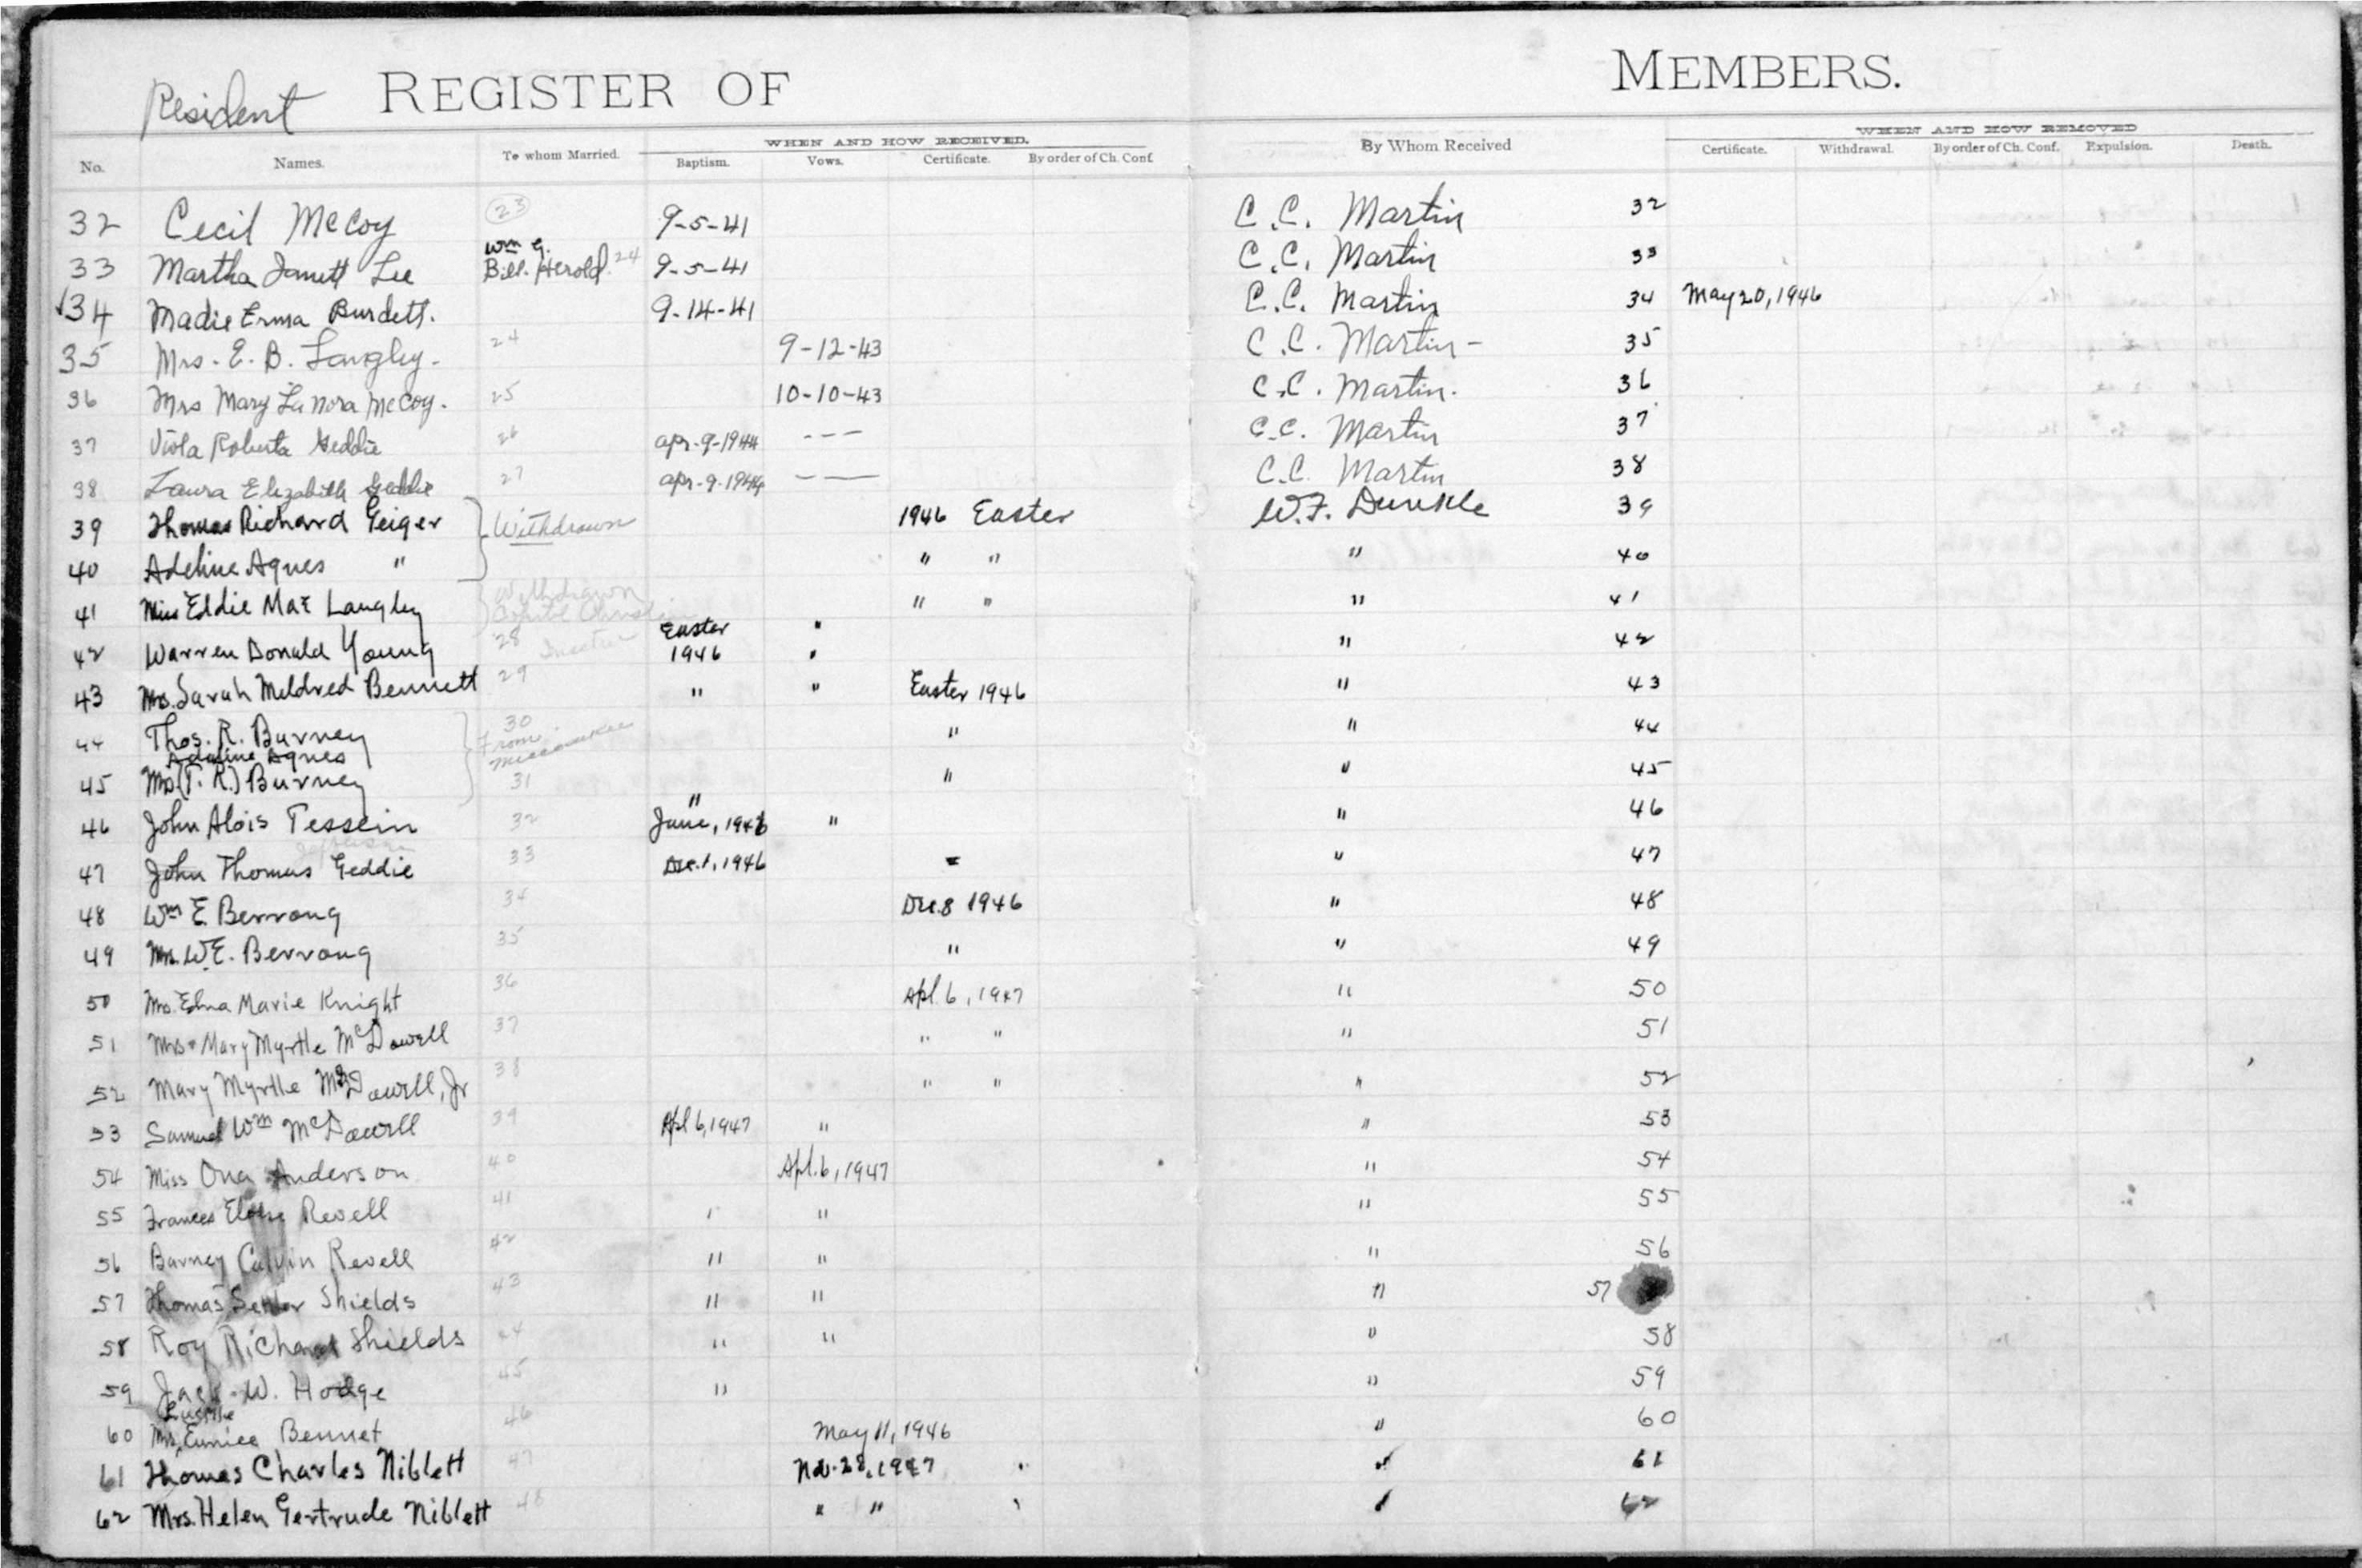 Resident REGISTER OF MEMBERS.
WHEN AND HOW RECEIVED. WHEN AND HOW REMOVED
No. Names. To whom Married. Baptism. Vows. Certificate. By order of Ch. Conf. By Whom Received Certificate. Withdrawal. By order of Ch. Conf. Expulsion. Death.
32 Cecil McCoy 23 9-5-41 C.C. Martin 32
Wm G.
33 Martha Janett Lee Bill. Herold. 24 9-5-41 C.C. Martin 33
34 Madie Erma Burdett. 9-14-41 C.C. Martin 34 May 20, 1946
35 Mrs. E. B. Langley. 24 9-12-43 C.C. Martin - 35
36 Mrs Mary LaNora McCoy. 25 10-10-43 C.C. Martin. 36
37 Viola Roberta Geddie 26 Apr-9-1944 --- C.C. Martin 37
38 Laura Elizabeth Geddie 27 Apr-9-1944 -- C.C. Martin 38
39 Thomas Richard Geiger Withdrawn 1946 Easter W.F. Dunkle 39
40 Adeline Agnes " " " " 40
41 Miss Eddie Mae Langley Withdrawn " " " 41
42 Warren Donald Young 28 Easter 1946 " " 42
43 Mrs. Sarah Mildred Bennett 29 " " Easter 1946 " 43
44 Thos. R. Burney 30 From Milwaukee " " 44
Adeline Agnes
45 Mrs (T. R.) Burney 31 " " 45
46 John Alois Tessein 32 " June, 1946 " " 46
47 John Thomas Geddie 33 Dec. 1, 1946 " " 47
48 Wm E. Berrong 34 Dec. 8 1946 " 48
49 Mrs. W.E. Berrong 35 " " 49
50 Mrs. Edna Marie Knight 36 Apl. 6, 1947 " 50
51 Mrs. Mary Myrtle McDowell 37 " " " 51
52 Mary Myrtle McDowell, Jr 38 " " " 52
53 Samuel Wm McDowell 39 Apl 6, 1947 " " 53
54 Miss Ona Anderson 40 Apl. 6, 1947 " 54
55 Frances Eloise Revell 41 " " " 55
56 Barney Calvin Revell 42 " " " 56
57 Thomas Shields 43 " " " 57
58 Roy Richard Shields 44 " " " 58
59 Jack W. Hodge 45 " " 59
Lucille
60 Mrs. Eunice Bennet 46 May 11, 1946 " 60
61 Thomas Charles Niblett 47 Nov. 28, 1947 " 61
62 Mrs. Helen Gertrude Niblett 48 " " " 62